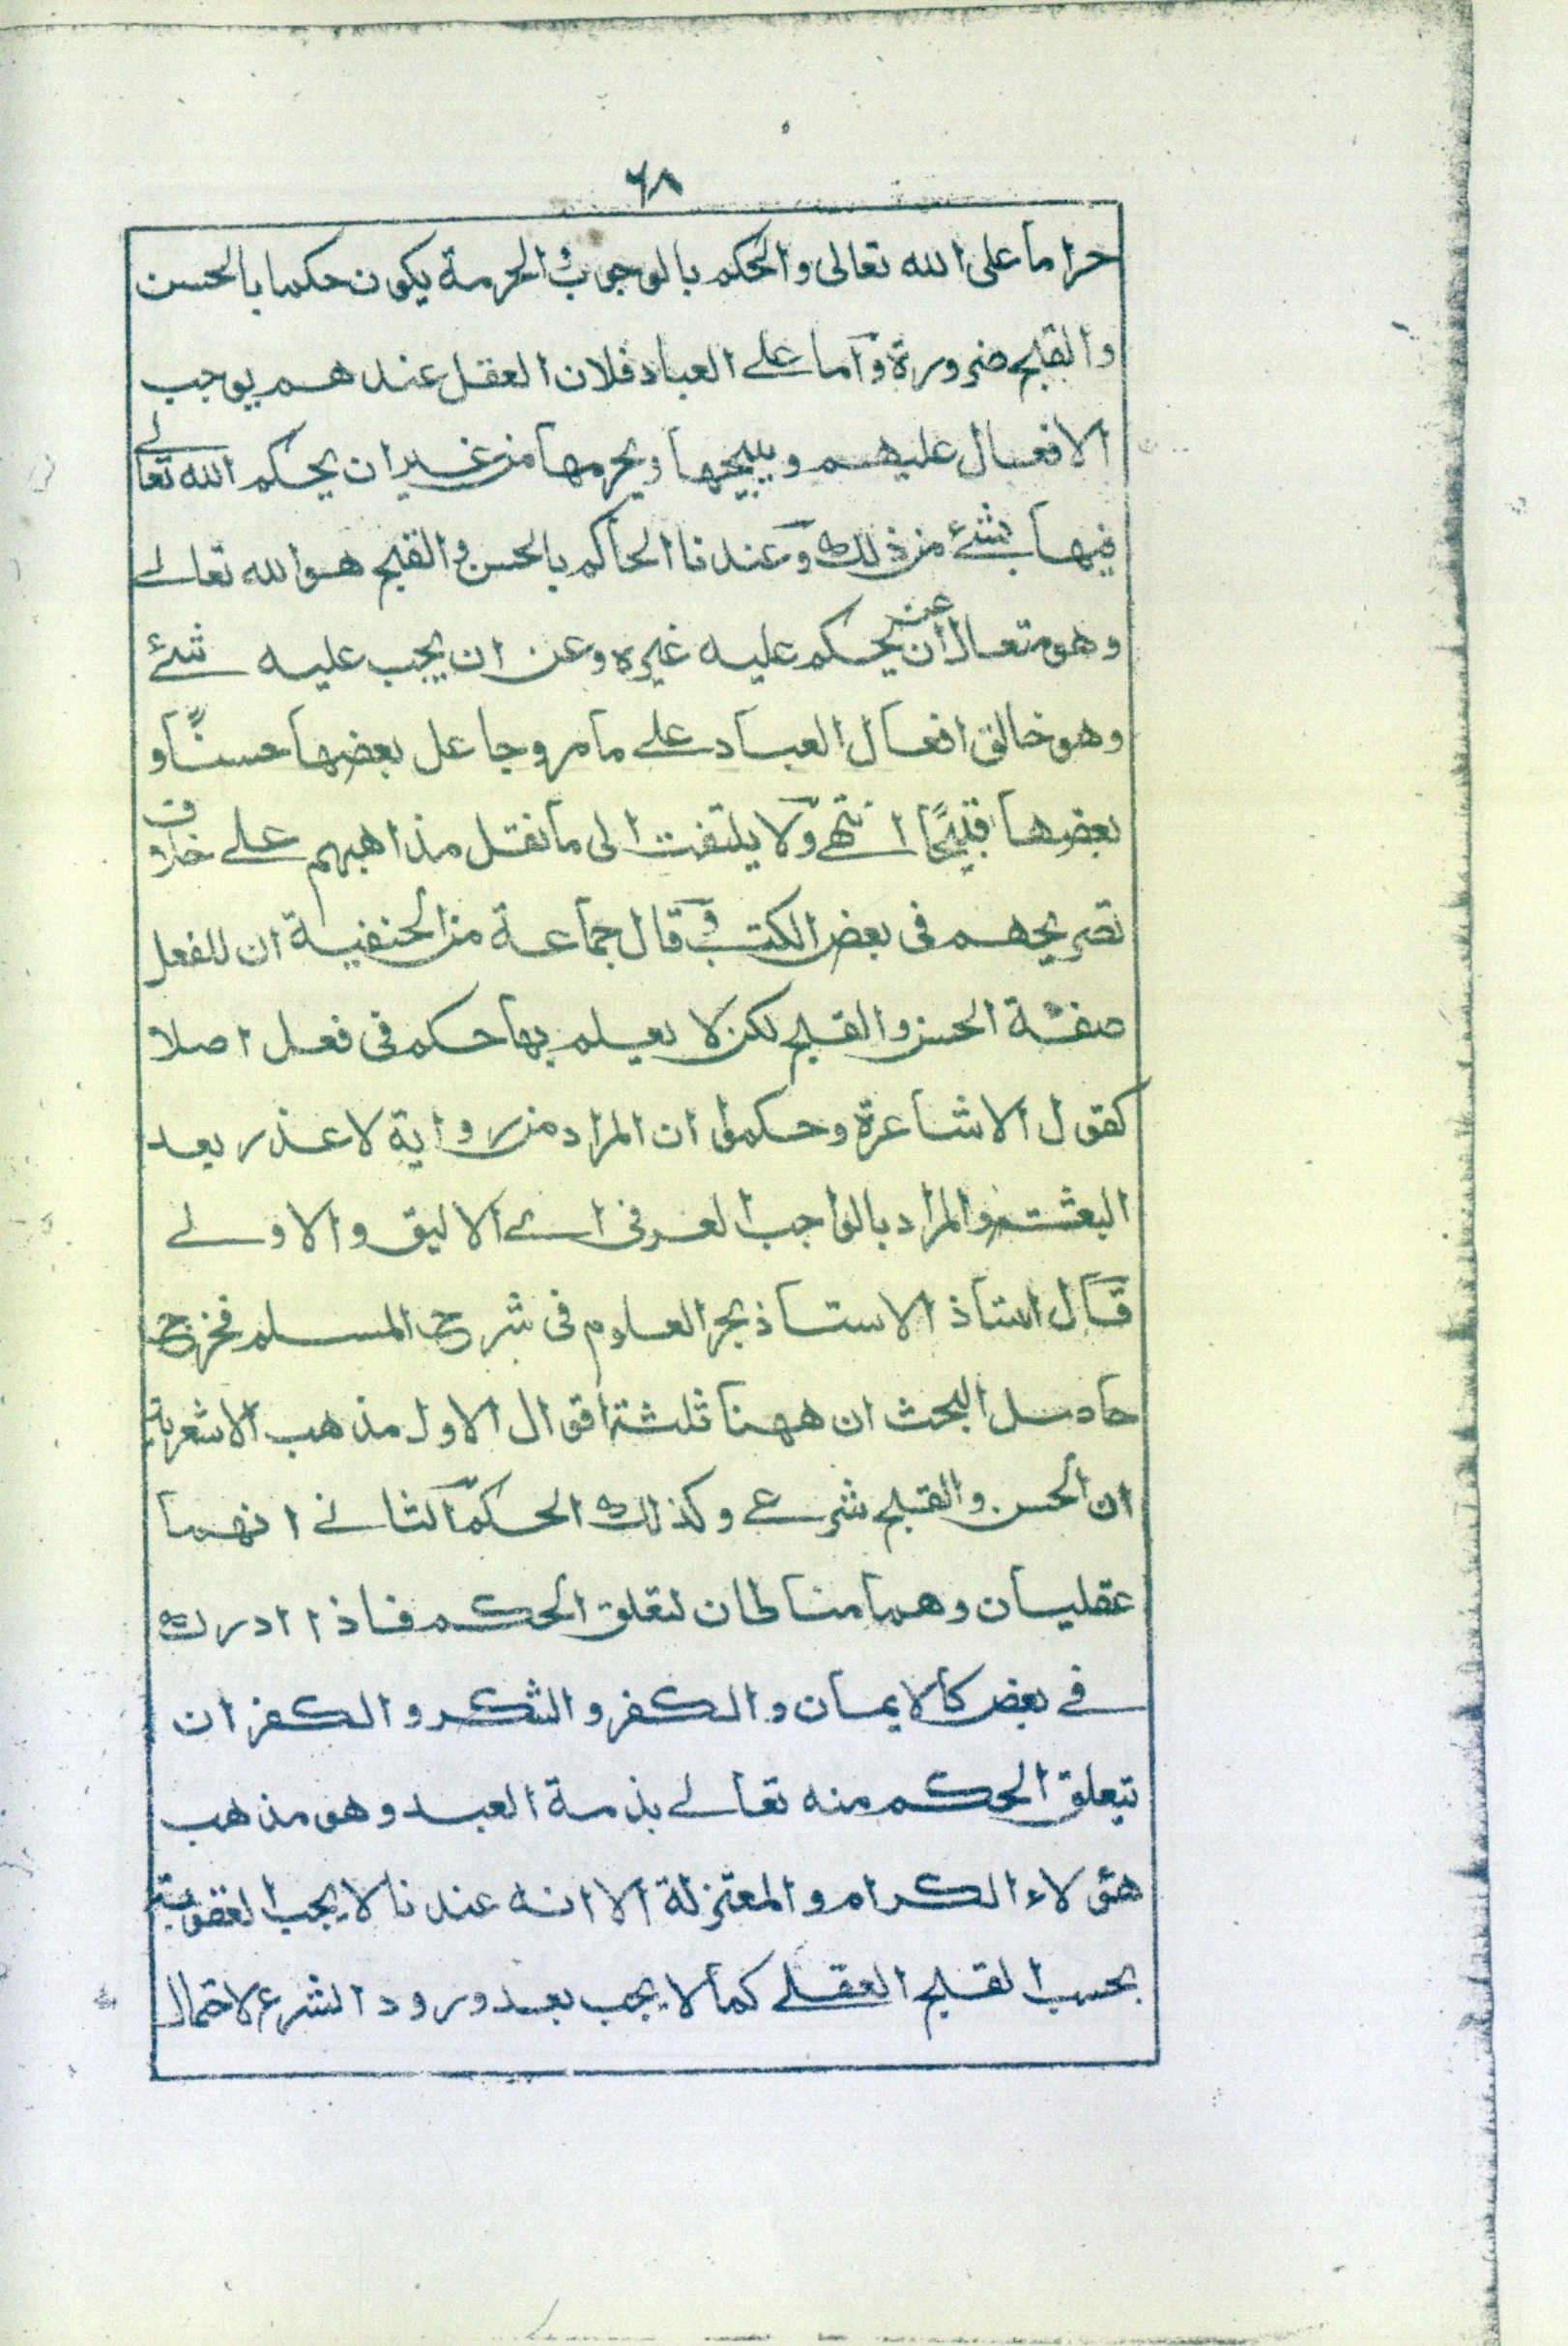 ٦٨
حراما على الله تعالى والحكم بالوجوب والحرمة يكون حكما بالحسن
والقبح ضرورة وآما علے العباد فلان العقل عندهم يوجب
الافعال عليهم ويبيحها ويحرمها من غير ان يحكم الله تعالے
فيها بشئ من ذلك وعندنا الحاكم بالحسن والقبح هو الله تعالے
وهو متعال عن ان يحكم عليه غيره وعن ان يجب عليه شئ
وهو خالق افعال العباد علے ما مر وجاعل بعضها حسنًا و
بعضها قبيحًا انتهے ولا يلتفت الى ما نقل مذاهبهم علے خلاف
تصريحهم فى بعض الكتب وقال جماعة من الحنفية ان للفعل
صفة الحسن والقبح لكن لا يعلم بها حكم فى فعل اصلا
كقول الاشاعرة وحكموا ان المراد من رواية لا عذر بعد
البعثة والمراد بالواجب العرفى اے الاليق والاولے
قال استاذ الاستاذ بحر العلوم فى شرح المسلم فخرج
حاصل البحث ان ههنا ثلثة اقوال الاول مذهب الاشعرية
ان الحسن والقبح شرعے وكذلك الحكم الثانے انهما
عقليان وهما مناطان لتعلق الحكم فاذا ادرك
فے بعض كالايمان والكفر والشكر والكفران
تيعلق الحكم منه تعالے بذمة العبد وهو مذهب
هؤلاء الكرام والمعتزلة الا انه عندنا لا يجب العقوبة
بحسب القبح العقلے كما لا يجب بعد ورود الشرع لاحتمال